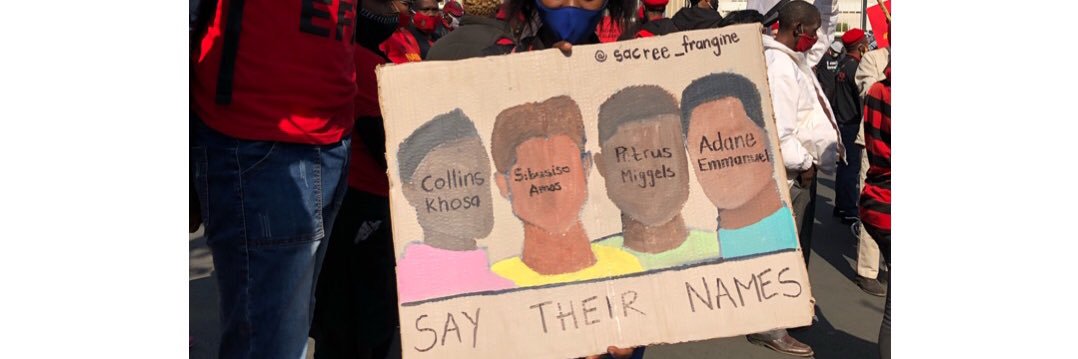 EF
@ sacree_frangine
Collins
Khosa
Sibusiso
Amos
Petrus
Miggels
Adane
Emmanuel
SAY THEIR NAMES